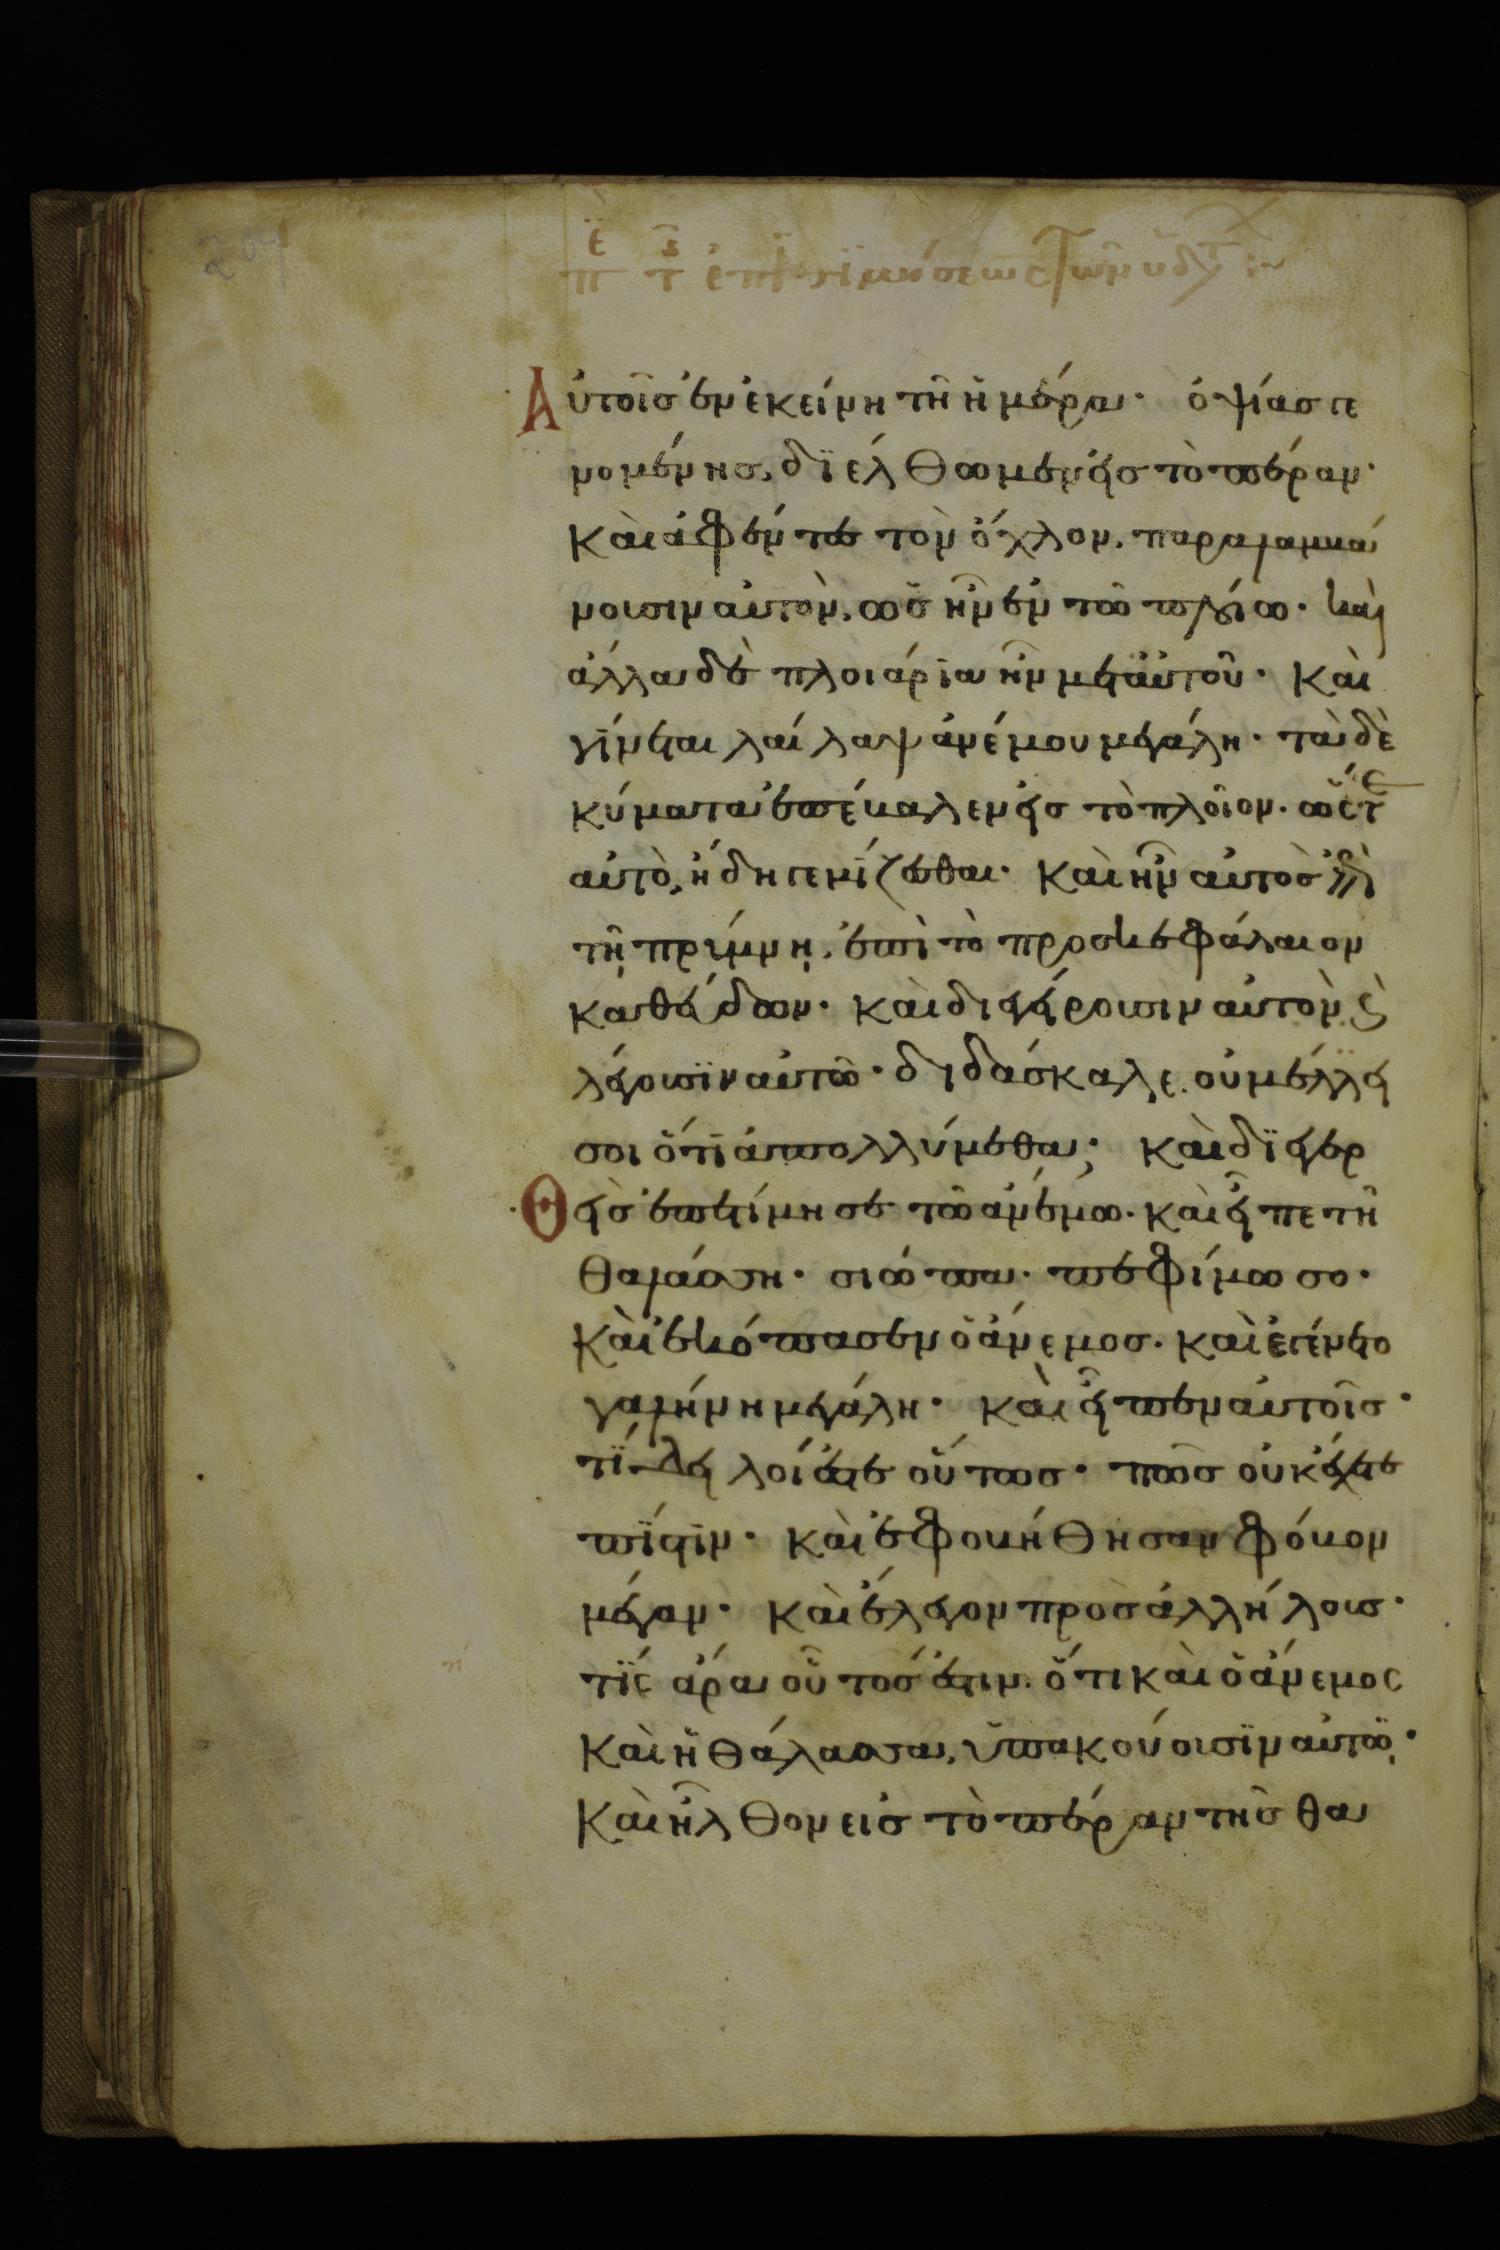 Αὐτοῖσ ἐν ἐκείνη τῆ ἡμέρα· ὀψίασ γε
νομένησ, διέλθωμεν εἰσ τὸ πέραν·
Καὶ ἀφέντεσ τὸν ὄχλον, παραλαμβά
νουσιν αὐτὸν, ὡσ ἦν ἐν τῶ πλοίω· καὶ
ἀλλα δὲ πλοιάρϊα ἦν μετ' αὐτοῦ· Καὶ
γίνεται λαίλαψ ἀνέμου μεγάλη· τὰ δὲ
κύματα ἐπέβαλεν εἰσ τὸ πλοῖον· ὥστε
αὐτὸ, ἤδη γεμίζεσθαι· Καὶ ἦν αὐτὸσ ἐπὶ
τῆ πρίμνη, ἐπὶ τὸ προσκεφάλαιον
καθεύδων· καὶ διεγείρουσιν αὐτὸν ϗ
λέγουσϊν αὐτῶ· διδάσκαλε, οὐ μέλλει
σοι ὅτϊ ἀπολλύμεθα; Καὶ διεγερ
Θεὶσ ἐπετίμησε τῶ ἀνέμω· καὶ εἶπε τῆ
θαλάσση· σιώπα· πεφίμωσο·
Καὶ ἐκόπασεν ὁ ἄνεμοσ· καὶ ἐγένετο
γαλήνη μεγάλη· καὶ εἶπεν αὐτοῖσ·
τί δειλοί ἐστε οὕτωσ· πῶσ οὐκ ἔχετε
πίστϊν· καὶ ἐφοβήθησαν φόβον
μέγαν· καὶ ἔλεγον προσ ἀλλήλουσ·
τίς ἄρα οὗτοσ ἐστιν· ὅτι καὶ ὁ ἄνεμος
Καὶ ἡ θάλασσα, ὑπακούουσϊν αὐτῶ·
Καὶ ἦλθον εἰσ τὸ πέραν τῆσ θα